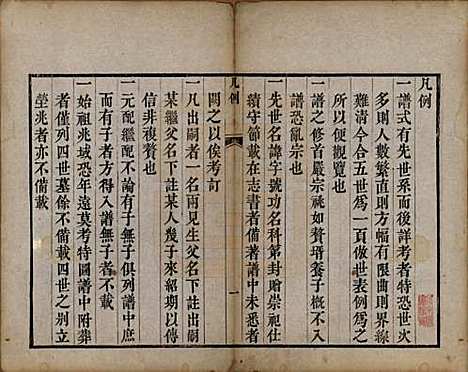 凡例
一譜式有先世系而後詳考者特恐世次
多則人數繁直則方幅有限曲則界線
難清今合五世爲一頁倣年表例爲之
所以便觀覽也
一譜之修首嚴宗祧如贅壻養子概不入
譜恐亂宗也
一先世名諱字號功名科第封贈崇祀仕
績守節載在志書者備著譜中未悉者
凡例
一
闕之以俟考訂
一凡出嗣者一名兩見生父名下註出嗣
某繼父名下註某人幾子來紹期以傳
信非複贅也
一元配繼配不論有子無子俱列譜中庶
而有子者入譜無子者不載
一始祖兆域恐年遠莫考特圖譜中附葬
者僅列四世墓餘不備載四世之别立
塋兆者亦不備載